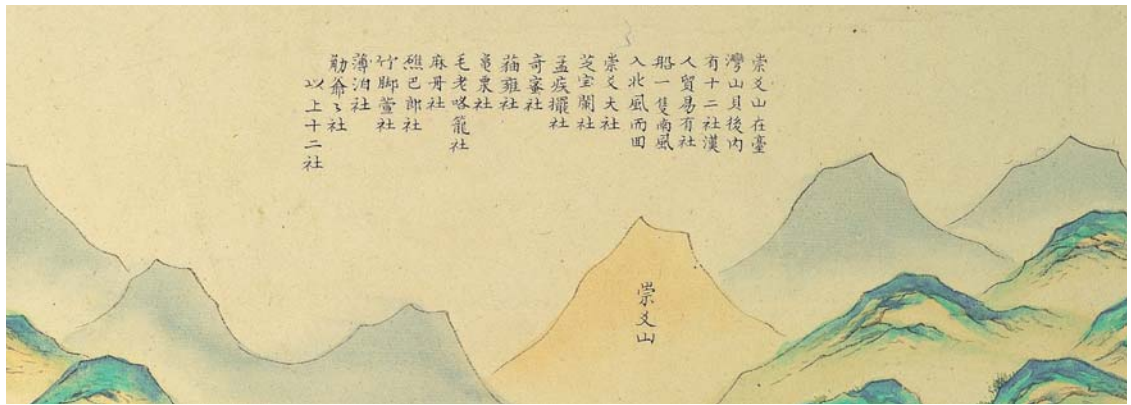 崇爻山在臺
灣山貝後內
有十二社漢
人貿易有社
船一隻南風
入北風而囬
崇爻大社
芝宝蘭社
孟疾擺社
奇蜜社
猫雍社
社
毛老咯籠社
麻丹社
巴郎社
竹脚萱社
薄泊社
爺〻社
以上十二社
崇爻山